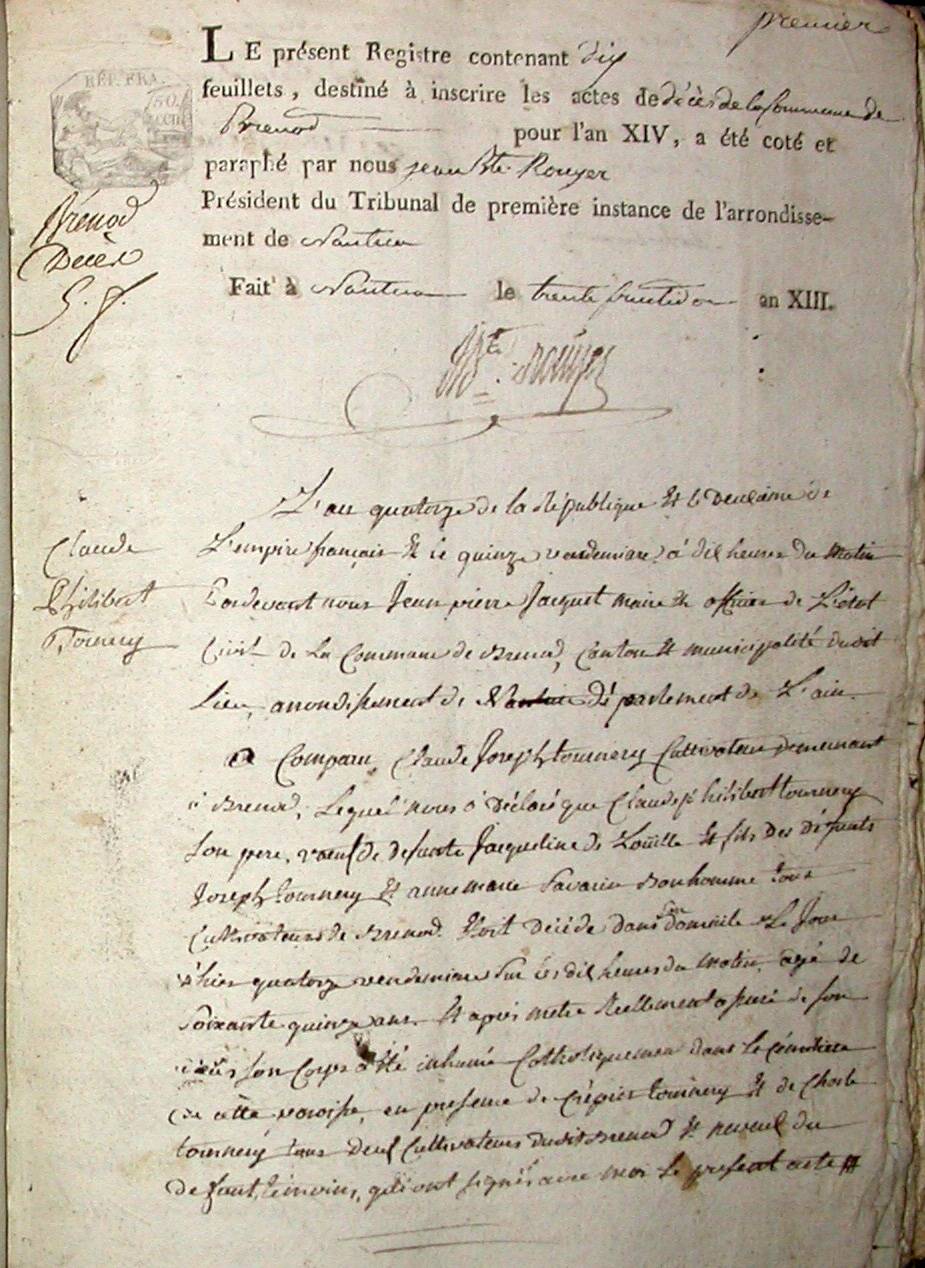 premier
LE présent Registre contenant dix
feuillets, destiné à inscrire les actes de décès de la Commune de
Brenod pour l'an XIV, a été coté et
paraphé par nous jean Bte Rouyer
Président du Tribunal de première instance de l'arrondisse-
ment de Nantua
Fait à Nantua le trente fructidor an XIII.
RÉP. FRA.
50
cen
Brenod
Décès
Bte Rouyer
L'an quatorze de la République Et le Deuxieme de
L'empire français Et le quinze vendemiaire à dix heures du Matin
Pardevant nous Jean pierre Jacquet maire Et officier de L'état
Civil de La Commune de Brenod, Canton Et municipalité dudit
Lieu, arrondissement de Nantua département de L'ain.
Claude
Philibert
Tournery
a Comparu Claude Joseph tournery Cultivateur demeurant
à Brenod, Lequel nous a Déclaré que Claude philibert tournery
Son pere, veuf de defunte Jacqueline de Loüille Et fils Des défunts
Joseph tournery Et anne marie Savarin Bonhomme tous
Cultivateurs de Brenod. Etoit Décédé Dans son domicile Le Jour
d'hier quatorze vendemiaire Sur les dix heures du Matin, agé de
Soixante quinze ans. Et après m'etre Réellement assuré de son
décès son Corps a été inhumé Catholiquement dans Le Cémetière
de cette paroisse, en presence de Crépin tournery Et de Charle
tournery tous deux Cultivateurs dudit Brenod Et neveux du
défunt, témoins, qui ont signés avec moi Le present acte